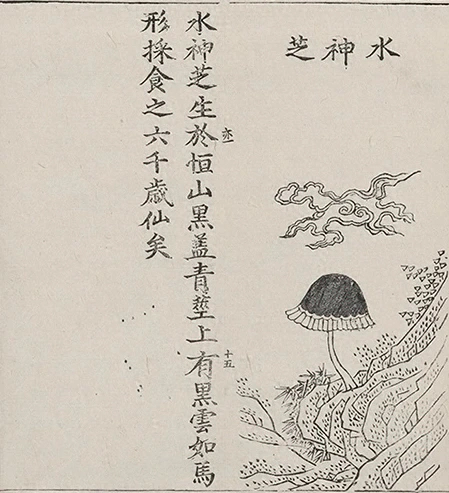 水神芝
水神芝生於恒山黑蓋青莖上有黑雲如馬
形採食之六千歲仙矣
十五